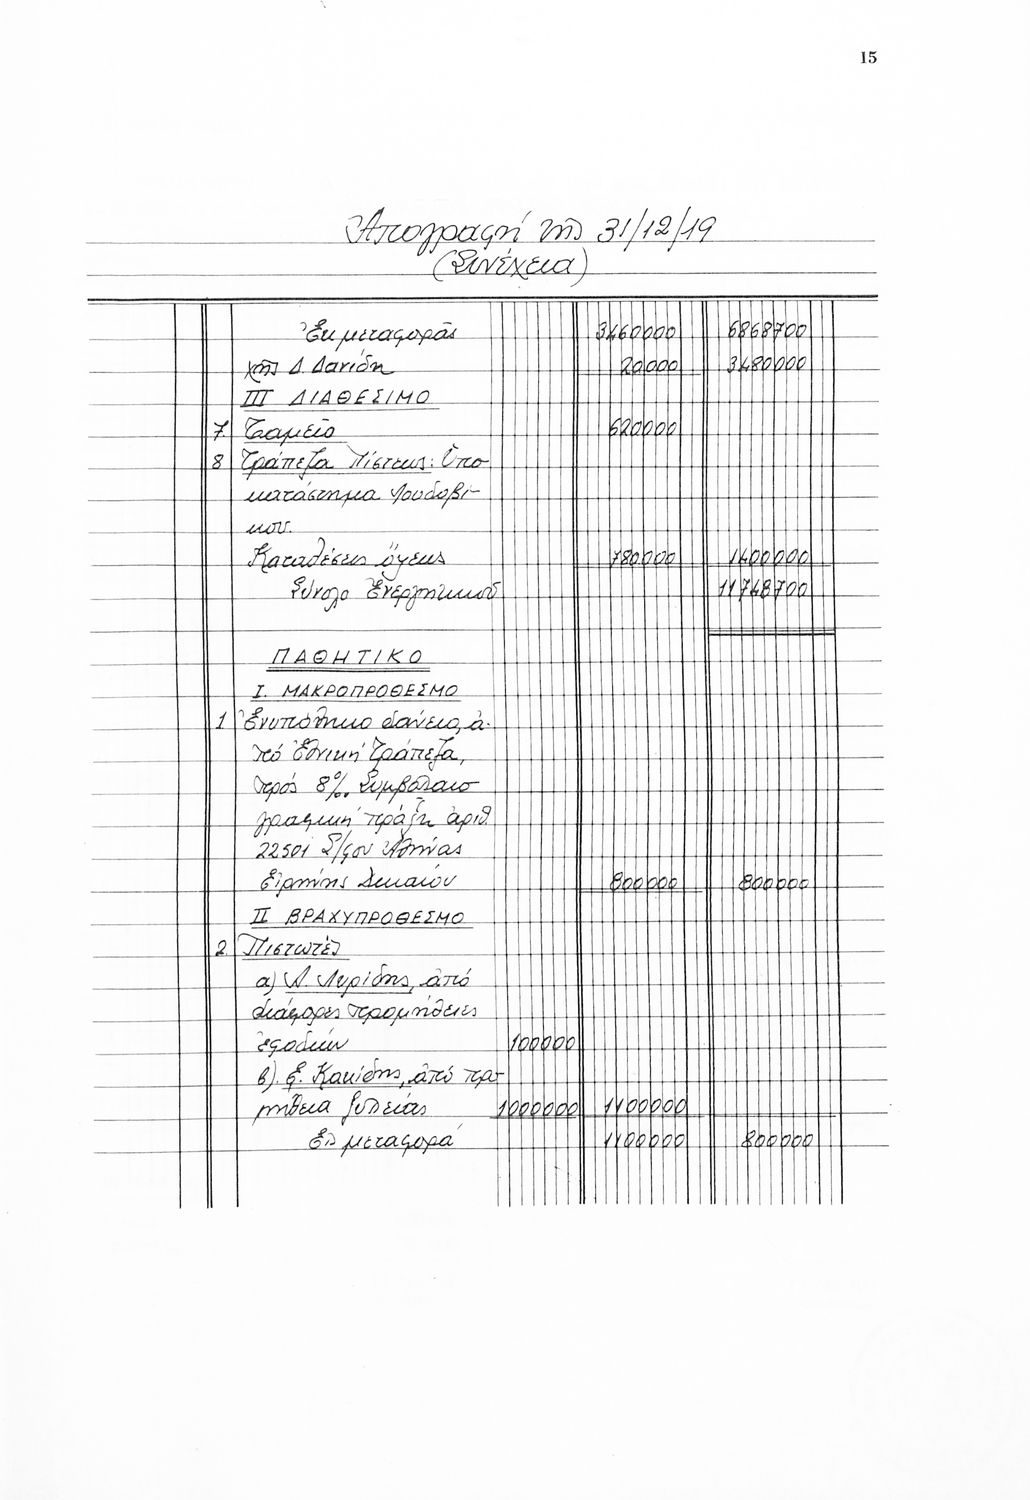 15
Ἀπογραφή τῆς 31/12/19
(Συνέχεια)
Ἐκ μεταφορᾶς 3460000 6868700
χρήσ Δ. Δανίδη 20000 3480000
III ΔΙΑΘΕΣΙΜΟ
7. Ταμεῖο 620000
8 Τράπεζα Πίστεως: Ὑπο-
κατάστημα Λουδοβί-
κου.
Καταθέσεις ὄψεως 780000 1400000
Σύνολο Ἐνεργητικοῦ 11748700
ΠΑΘΗΤΙΚΟ
I. ΜΑΚΡΟΠΡΟΘΕΣΜΟ
1 Ἐνυπόθηκο δάνειο, ἀ-
πό Ἐθνική Τράπεζα,
πρός 8%. Συμβολαιο
γραφική πράξη ἀριθ.
22501 Σ/φου Ἀθήνας
Εἰρήνης Δικαίου 800000 800000
II ΒΡΑΧΥΠΡΟΘΕΣΜΟ
2. Πιστωτές
α) Λ. Λυρίδης, ἀπό
διάφορες προμήθειες
ἐφοδίων 100000
β). ξ. Κακίδης, ἀπό προ-
μήθεια ξυλείας 1000000 1100000
Εἰς μεταφορά 1100000 800000